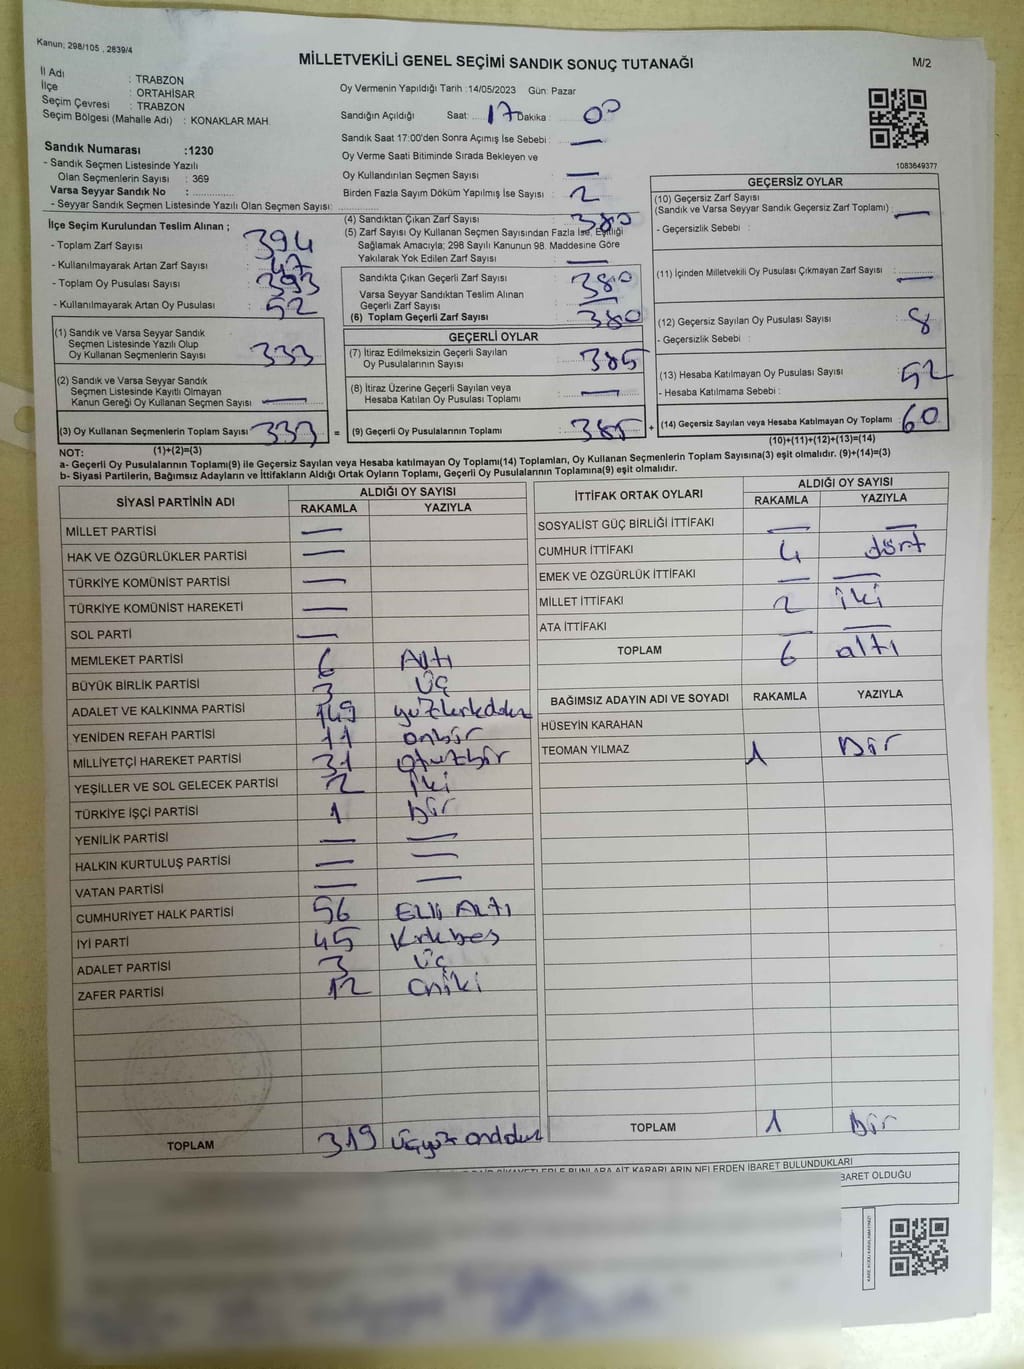 Kanun; 298/105 , 2839/4
MİLLETVEKİLİ GENEL SEÇİMİ SANDIK SONUÇ TUTANAĞI
M/2
İl Adı : TRABZON
İlçe : ORTAHİSAR
Seçim Çevresi : TRABZON
Seçim Bölgesi (Mahalle Adı) : KONAKLAR MAH.
Oy Vermenin Yapıldığı Tarih :14/05/2023 Gün: Pazar
Sandığın Açıldığı Saat: 17 Dakika : 00
Sandık Saat 17:00'den Sonra Açımış İse Sebebi : —
Oy Verme Saati Bitiminde Sırada Bekleyen ve
Oy Kullandırılan Seçmen Sayısı —
Birden Fazla Sayım Döküm Yapılmış İse Sayısı : 2
1083649377
Sandık Numarası :1230
- Sandık Seçmen Listesinde Yazılı
Olan Seçmenlerin Sayısı : 369
Varsa Seyyar Sandık No :
- Seyyar Sandık Seçmen Listesinde Yazılı Olan Seçmen Sayısı:
İlçe Seçim Kurulundan Teslim Alınan ;
- Toplam Zarf Sayısı 394
- Kullanılmayarak Artan Zarf Sayısı : 47
- Toplam Oy Pusulası Sayısı : 393
- Kullanılmayarak Artan Oy Pusulası : 52
(1) Sandık ve Varsa Seyyar Sandık
Seçmen Listesinde Yazılı Olup
Oy Kullanan Seçmenlerin Sayısı 333
(2) Sandık ve Varsa Seyyar Sandık
Seçmen Listesinde Kayıtlı Olmayan
Kanun Gereği Oy Kullanan Seçmen Sayısı —
(3) Oy Kullanan Seçmenlerin Toplam Sayısı 333 =
(4) Sandıktan Çıkan Zarf Sayısı : 380
(5) Zarf Sayısı Oy Kullanan Seçmen Sayısından Fazla İse, Eşitliği
Sağlamak Amacıyla; 298 Sayılı Kanunun 98. Maddesine Göre
Yakılarak Yok Edilen Zarf Sayısı —
Sandıkta Çıkan Geçerli Zarf Sayısı : 380
Varsa Seyyar Sandıktan Teslim Alınan
Geçerli Zarf Sayısı —
(6) Toplam Geçerli Zarf Sayısı 380
GEÇERLİ OYLAR
(7) İtiraz Edilmeksizin Geçerli Sayılan
Oy Pusulalarının Sayısı : 385
(8) İtiraz Üzerine Geçerli Sayılan veya
Hesaba Katılan Oy Pusulası Toplamı : —
(9) Geçerli Oy Pusulalarının Toplamı 385 +
GEÇERSİZ OYLAR
(10) Geçersiz Zarf Sayısı
(Sandık ve Varsa Seyyar Sandık Geçersiz Zarf Toplamı) : —
- Geçersizlik Sebebi :
(11) İçinden Milletvekili Oy Pusulası Çıkmayan Zarf Sayısı : —
(12) Geçersiz Sayılan Oy Pusulası Sayısı : 8
- Geçersizlik Sebebi :
(13) Hesaba Katılmayan Oy Pusulası Sayısı : 52
- Hesaba Katılmama Sebebi :
(14) Geçersiz Sayılan veya Hesaba Katılmayan Oy Toplamı : 60
NOT: (1)+(2)=(3) (10)+(11)+(12)+(13)=(14)
a- Geçerli Oy Pusulalarının Toplamı(9) ile Geçersiz Sayılan veya Hesaba katılmayan Oy Toplamı(14) Toplamları, Oy Kullanan Seçmenlerin Toplam Sayısına(3) eşit olmalıdır. (9)+(14)=(3)
b- Siyasi Partilerin, Bağımsız Adayların ve İttifakların Aldığı Ortak Oyların Toplamı, Geçerli Oy Pusulalarının Toplamına(9) eşit olmalıdır.
SİYASİ PARTİNİN ADI ALDIĞI OY SAYISI
RAKAMLA YAZIYLA
MİLLET PARTİSİ —
HAK VE ÖZGÜRLÜKLER PARTİSİ —
TÜRKİYE KOMÜNİST PARTİSİ —
TÜRKİYE KOMÜNİST HAREKETİ —
SOL PARTİ —
MEMLEKET PARTİSİ 6 Altı
BÜYÜK BİRLİK PARTİSİ 3 Üç
ADALET VE KALKINMA PARTİSİ 149
YENİDEN REFAH PARTİSİ 11 onbir
MİLLİYETÇİ HAREKET PARTİSİ 31 otuzbir
YEŞİLLER VE SOL GELECEK PARTİSİ 2 iki
TÜRKİYE İŞÇİ PARTİSİ 1 bir
YENİLİK PARTİSİ — —
HALKIN KURTULUŞ PARTİSİ — —
VATAN PARTİSİ — —
CUMHURİYET HALK PARTİSİ 56 ELLİ ALTI
İYİ PARTİ 45 Kırkbeş
ADALET PARTİSİ 3 Üç
ZAFER PARTİSİ 12 oniki
TOPLAM 319
İTTİFAK ORTAK OYLARI ALDIĞI OY SAYISI
RAKAMLA YAZIYLA
SOSYALİST GÜÇ BİRLİĞİ İTTİFAKI — —
CUMHUR İTTİFAKI 4 dört
EMEK VE ÖZGÜRLÜK İTTİFAKI — —
MİLLET İTTİFAKI 2 iki
ATA İTTİFAKI — —
TOPLAM 6 altı
BAĞIMSIZ ADAYIN ADI VE SOYADI RAKAMLA YAZIYLA
HÜSEYİN KARAHAN
TEOMAN YILMAZ 1 bir
TOPLAM 1 bir
KARARLARIN NELERDEN İBARET BULUNDUKLARI
İBARET OLDUĞU